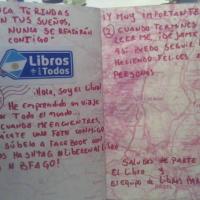 NUNCA TE RINDAS
EN TUS SUEÑOS,
NUNCA SE REÑIRÁN
CONTIGO"
Libros
para Todos
¡Hola, Soy El Libro!
He emprendido un viaje
por todo el mundo...
CUANDO ME ENCUENTRES,
HAZTE UNA FOTO CONMIGO
Y SÚBELA A FACEBOOK CON
LOS HASHTAG #LIBERENALLIBRO
¡Y MUY IMPORTANTE!
2 CUANDO TERMINES
LEERME, ¡DEJAME
ASÍ PUEDO SEGUIR
HACIENDO FELICES
PERSONAS
SALUDOS DE PARTE
EL LIBRO Y
El equipo de LIBROS PARA